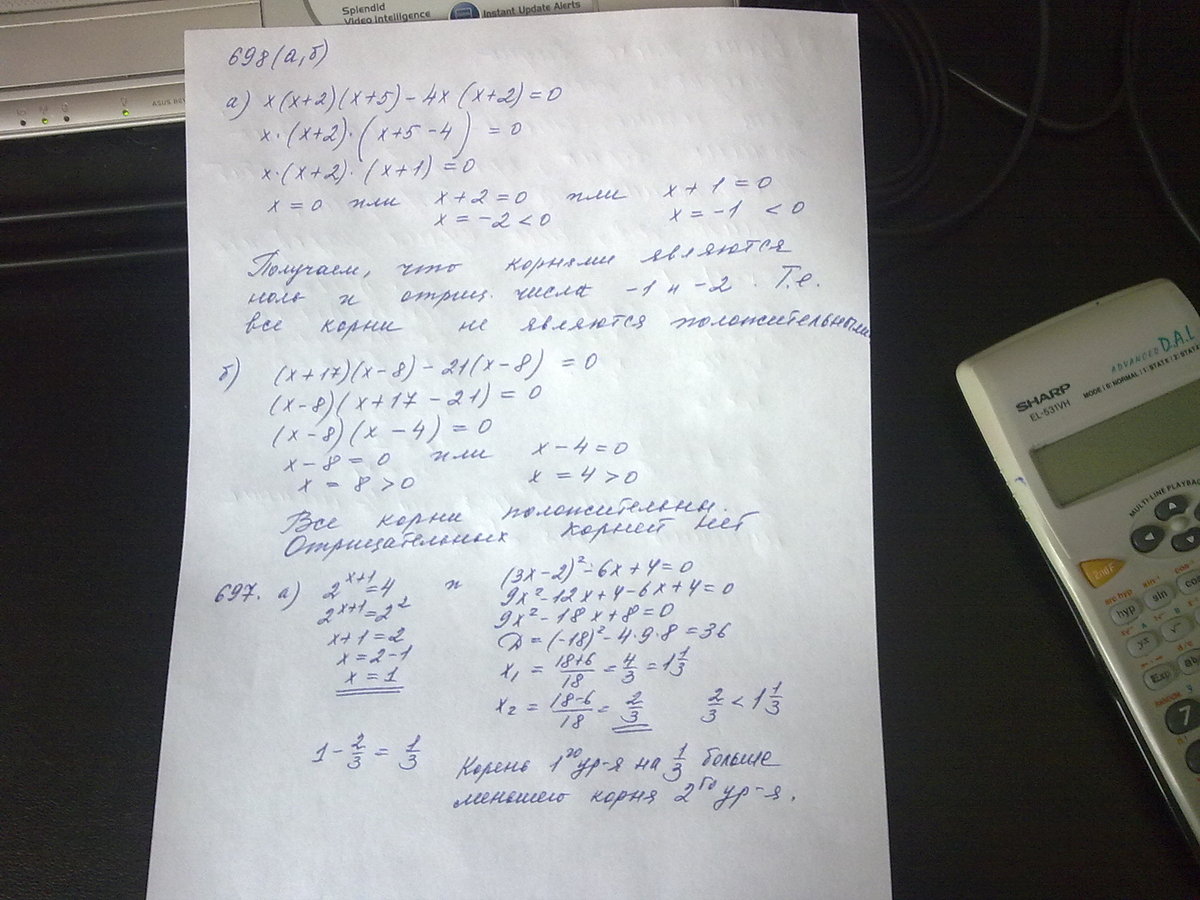 Splendid
Video Intelligence
Instant Update Alerts
698(а,б)
а) x(x+2)(x+5)-4x(x+2)=0
x·(x+2)·(x+5-4)=0
x·(x+2)·(x+1)=0
x=0 или x+2=0 или x+1=0
x=-2<0 x=-1 <0
Получаем, что корнями являются
ноль и отриц. числа -1 и -2. Т.е.
все корни не являются положительными
б) (x+17)(x-8)-21(x-8)=0
(x-8)(x+17-21)=0
(x-8)(x-4)=0
x-8=0 или x-4=0
x=8>0 x=4>0
Все корни положительны.
Отрицательных корней нет
697. а) 2^(x+1)=4 и (3x-2)²-6x+4=0
2^(x+1)=2² 9x²-12x+4-6x+4=0
x+1=2 9x²-18x+8=0
x=2-1 D=(-18)²-4·9·8=36
x=1 x₁=18+6/18=4/3=1 1/3
x₂=18-6/18=2/3 2/3<1 1/3
1-2/3=1/3 Корень 1го ур-я на 1/3 больше
меньшего корня 2го ур-я.
ADVANCED D.A.L.
MODE (0: NORMAL / 1: STAT
SHARP
EL-531VH
MULTI-LINE PLAYBA
2ndF
arc hyp
sin⁻¹
hyp
sin
Exp
7